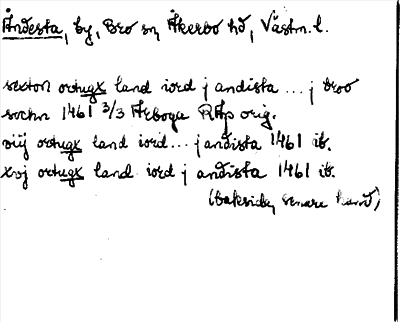 Åndesta, by, Bro sn, Åkerbo hd, Västm. l.
sexton ortugx land iord j andista ... j broo
sochn 1461 3/3 Arboga RAp orig.
viij ortugx land iord ... j andista 1461 ib.
xvj ortugx land iord j andista 1461 ib.
(baksida, senare hand)